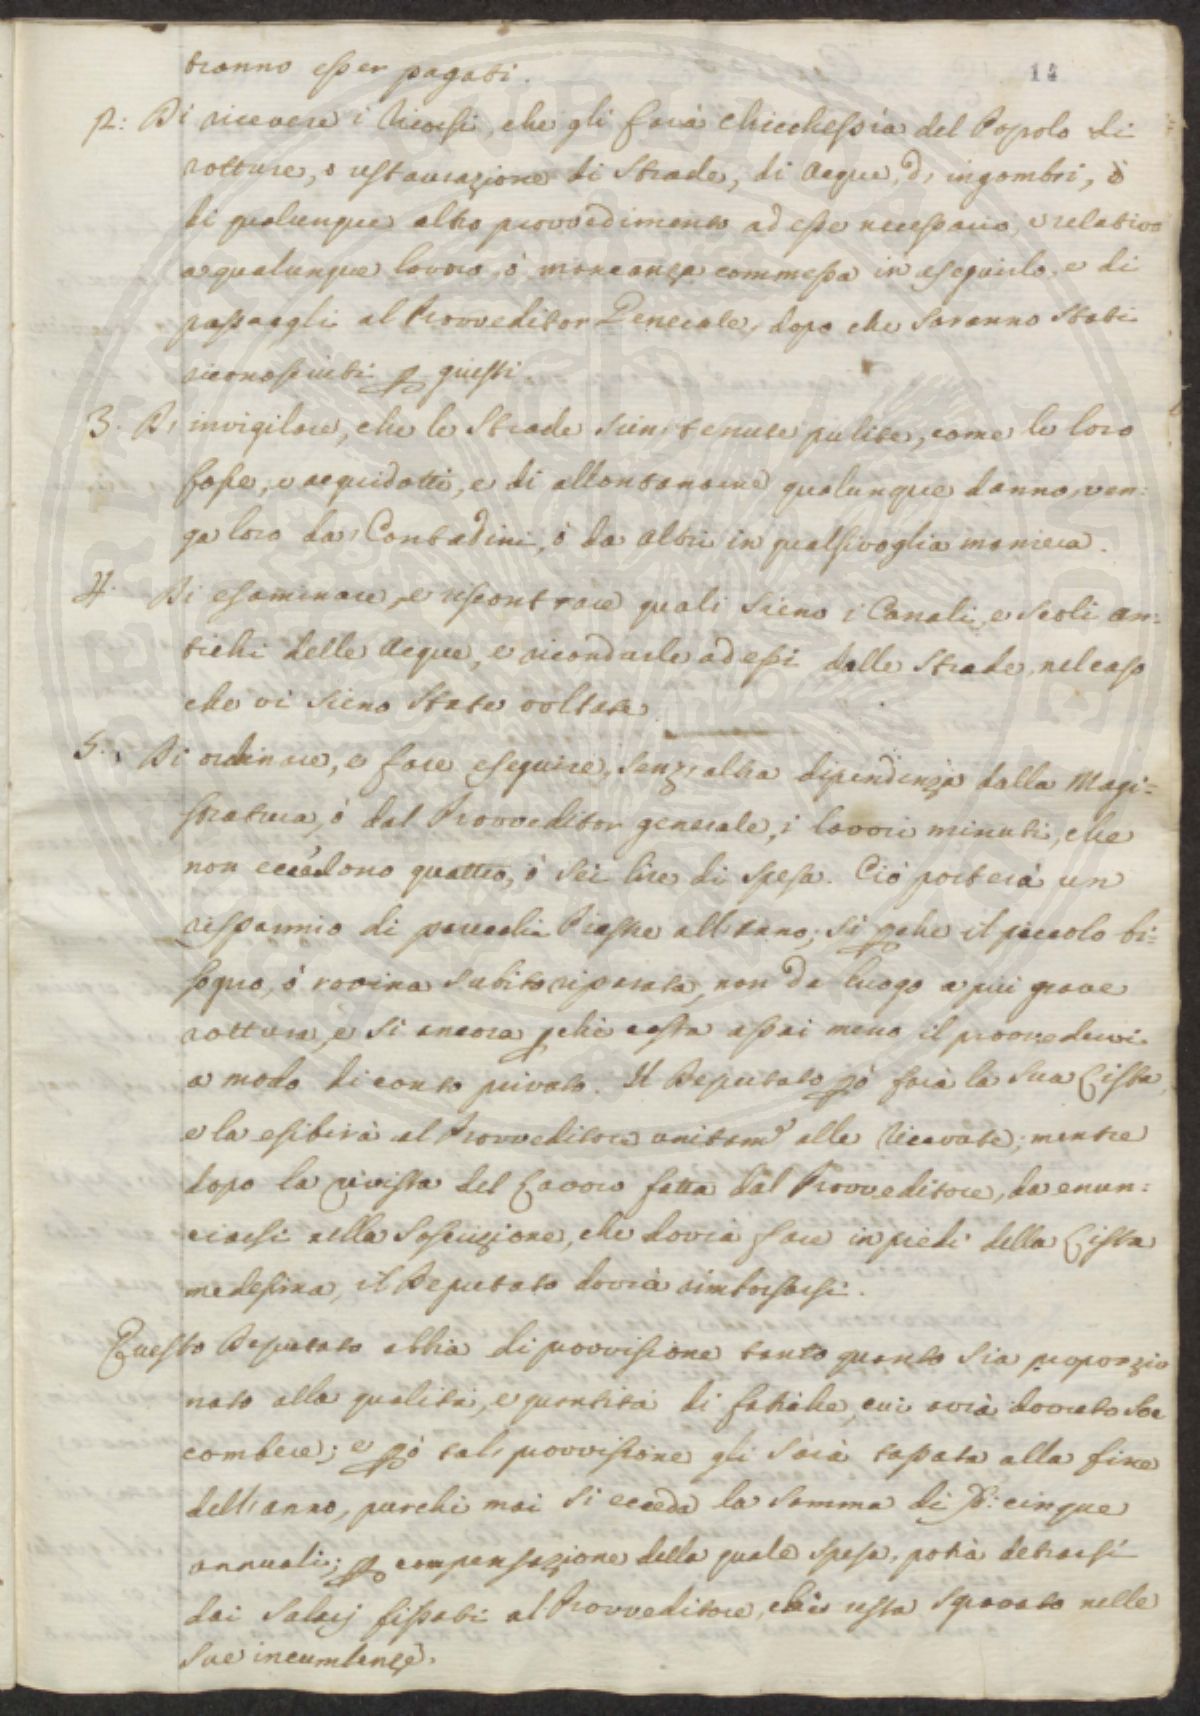 14
tranno esser pagati.
2: Di ricevere i Ricorsi, che gli farà chicchessia del Popolo di
rotture, o restaurazione di Strade, di Acque, d'ingombri, ò
di qualunque altro provvedimento ad esse necessario, e relativo
a qualunque lavoro, ò mancanza commessa in eseguirlo, e di
passargli al Provveditor Generale, dopo che saranno stati
riconosciuti p questi.
3. D'invigilare, che le Strade sien tenute pulite, come le loro
fosse, e acquidotti, e di allontanarne qualunque danno, ven:
ga loro da' Contadini, ò da altri in qualsivoglia maniera.
4. Di esaminare, e riscontrare quali sieno i Canali, e Scoli an:
tichi delle Acque, e ricondurle ad essi dalle Strade, nel caso
che vi sieno state voltate.
5. Di ordinare, e fare eseguire, senz'altra dipendenza dalla Magi=
stratura, ò dal Provveditor generale, i lavori minuti, che
non eccedono quattro, ò sei lire di spesa. Ciò porterà un
risparmio di parecchi Piastre all'anno; sì pche il piccolo bi=
sogno, ò rovina subito riparata, non dà luogo a più grave
rottura, e sì ancora pchè costa assai meno il provvedervi
a modo di conto privato. Il Deputato pò farà la sua Lista,
e la esibirà al Provveditore unitam.e alle Ricevute; mentre
dopo la rivista del Lavoro fatta dal Provveditore, da enun:
ciarsi nella Soscrizione, che dovrà fare in piedi della Lista
medesima, il Deputato dovrà rimborsarsi.
Questo Deputato abbia di provvisione tanto quanto sia proporzio
nato alla qualità, e quantità di fatiche, cui avrà dovuto soc
combere; e pò tal provvisione gli sarà tassata alla fine
dell'anno, purchè mai si ecceda la somma di cinque
annuali; p compensazione della quale spesa, potrà detrarsi
dai Salarj fissati al Provveditore, che resta sgravato nelle
sue incumbenze.